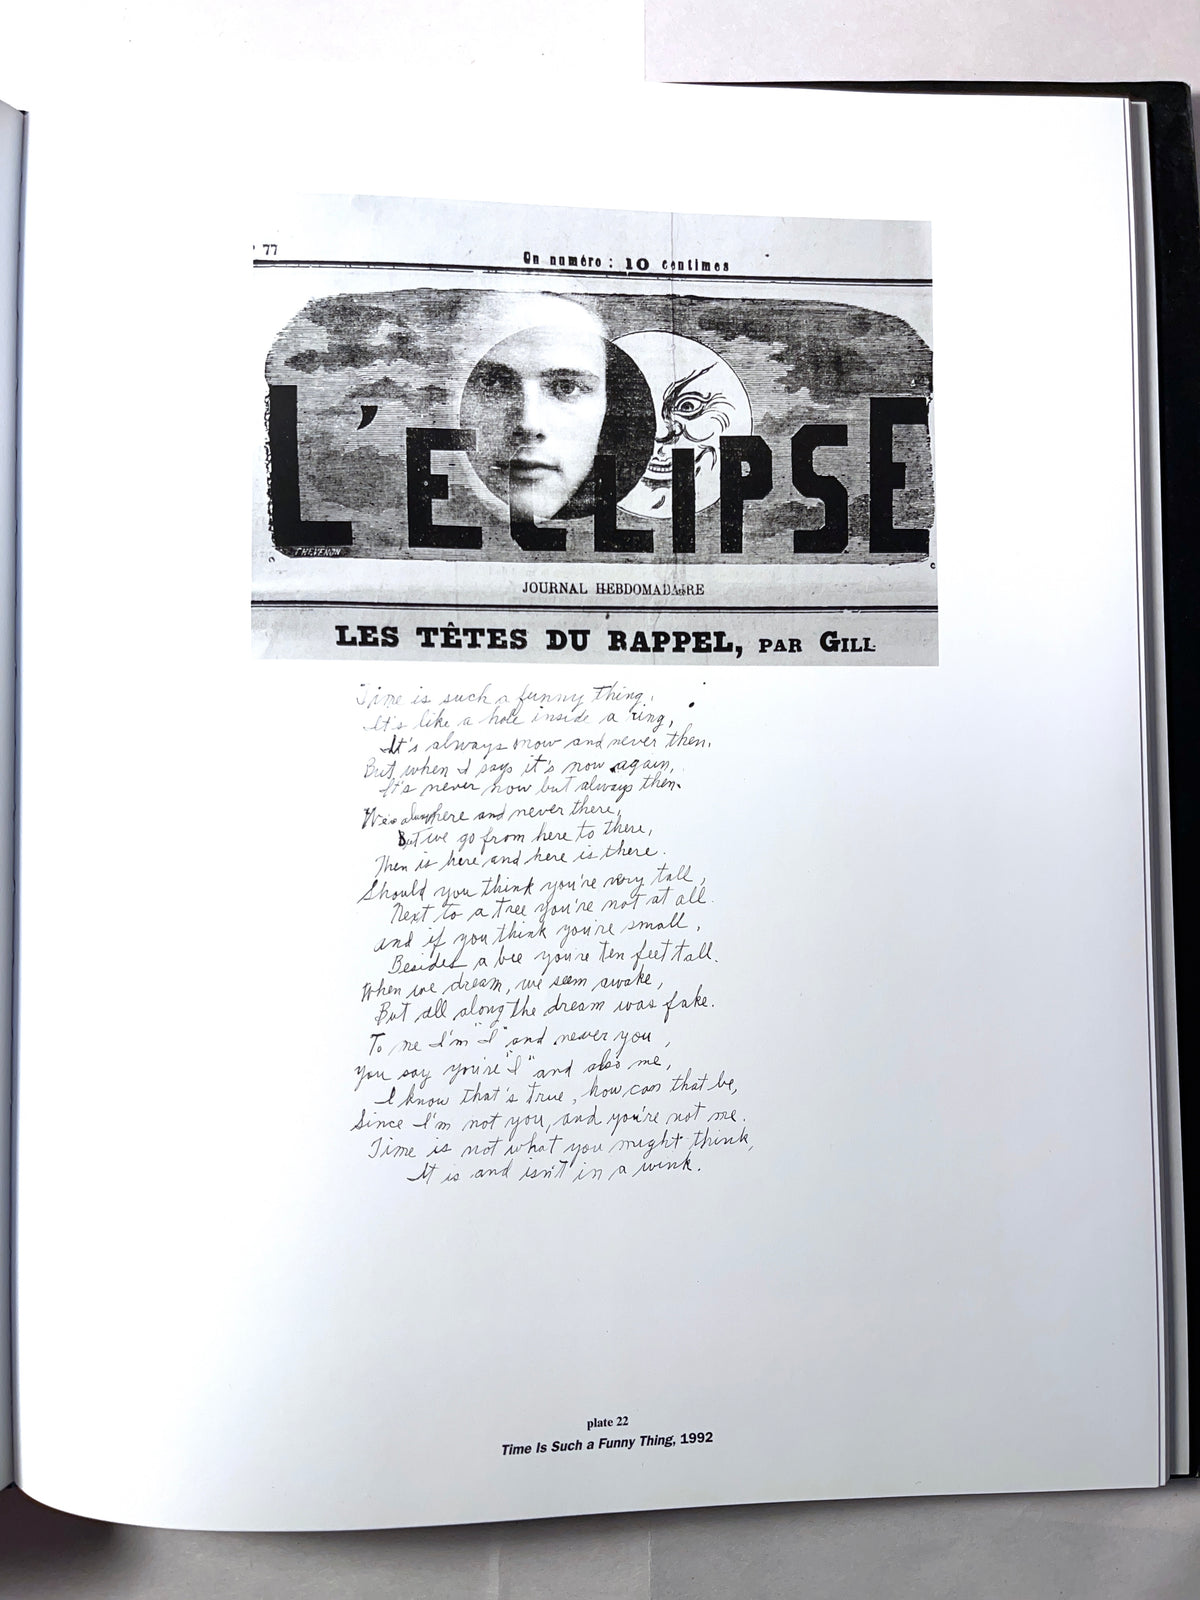 77
Un numéro : 10 centimes
L'ECLIPSE
THEVENON
JOURNAL HEBDOMADAIRE
LES TÊTES DU RAPPEL, PAR GILL
Time is such a funny thing,
It's like a hole inside a ring,
It's always now and never then.
But when I say it's now again,
It's never now but always then.
We're always here and never there,
But we go from here to there,
Then is here and here is there.
Should you think you're very tall,
Next to a tree you're not at all.
and if you think you're small,
Besides a bee you're ten feet tall.
When we dream, we seem awake,
But all along the dream was fake.
To me I'm "I" and never you,
You say you're "I" and also me,
I know that's true, how can that be,
Since I'm not you, and you're not me.
Time is not what you might think,
It is and isn't in a wink.
plate 22
Time Is Such a Funny Thing, 1992